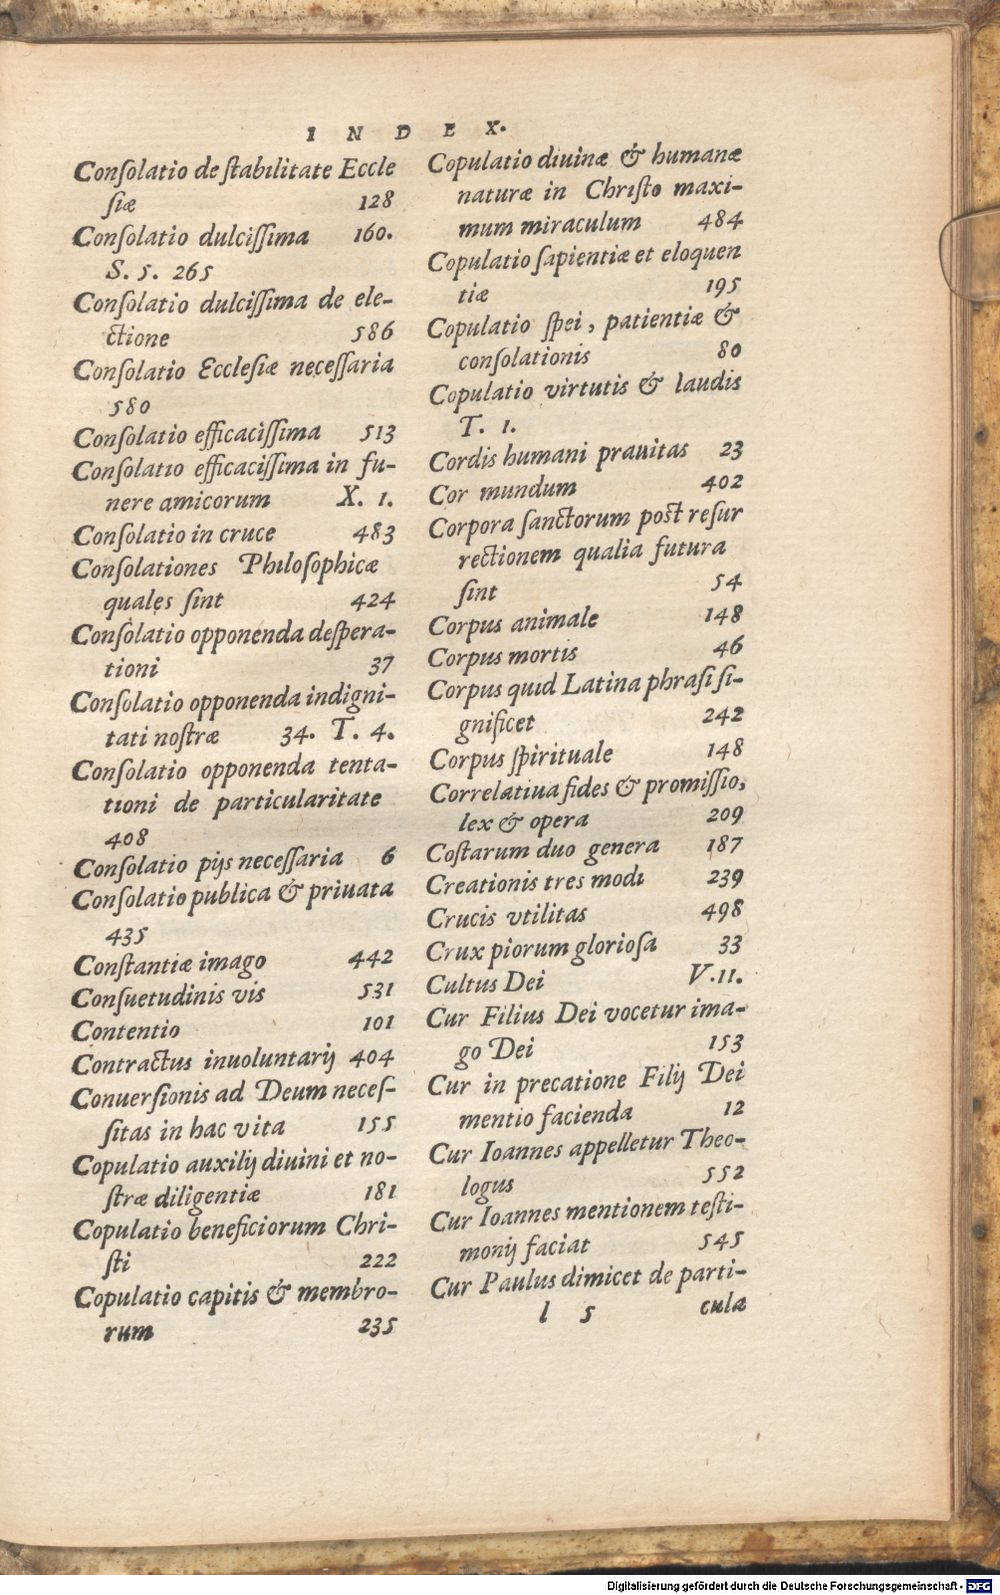 I N D E X.
Conſolatio de ſtabilitate Eccle
ſiæ 128
Conſolatio dulciſſima 160.
S. 5. 265
Conſolatio dulciſſima de ele-
ctione 586
Conſolatio Eccleſiæ neceſſaria
580
Conſolatio efficaciſſima 513
Conſolatio efficaciſſima in fu-
nere amicorum X. 1.
Conſolatio in cruce 483
Conſolationes Philoſophicæ
quales ſint 424
Conſolatio opponenda deſpera-
tioni 37
Conſolatio opponenda indigni-
tati noſtræ 34. T. 4.
Conſolatio opponenda tenta-
tioni de particularitate
408
Conſolatio pijs neceſſaria 6
Conſolatio publica & priuata
435
Conſtantiæ imago 442
Conſuetudinis vis 531
Contentio 101
Contractus inuoluntarij 404
Conuerſionis ad Deum neceſ-
ſitas in hac vita 155
Copulatio auxilij diuini et no-
ſtræ diligentiæ 181
Copulatio beneficiorum Chri-
ſti 222
Copulatio capitis & membro-
rum 235
Copulatio diuinæ & humanæ
naturæ in Chriſto maxi-
mum miraculum 484
Copulatio ſapientiæ et eloquen
tiæ 195
Copulatio ſpei, patientiæ &
conſolationis 80
Copulatio virtutis & laudis
T. 1.
Cordis humani prauitas 23
Cor mundum 402
Corpora ſanctorum poſt reſur
rectionem qualia futura
ſint 54
Corpus animale 148
Corpus mortis 46
Corpus quid Latina phraſi ſi-
gnificet 242
Corpus ſpirituale 148
Correlatiua fides & promiſſio,
lex & opera 209
Coſtarum duo genera 187
Creationis tres modi 239
Crucis vtilitas 498
Crux piorum glorioſa 33
Cultus Dei V. 11.
Cur Filius Dei vocetur ima-
go Dei 153
Cur in precatione Filij Dei
mentio facienda 12
Cur Ioannes appelletur Theo-
logus 552
Cur Ioannes mentionem teſti-
monij faciat 545
Cur Paulus dimicet de parti-
l 5 cula
Digitalisierung gefördert durch die Deutsche Forschungsgemeinschaft - DFG